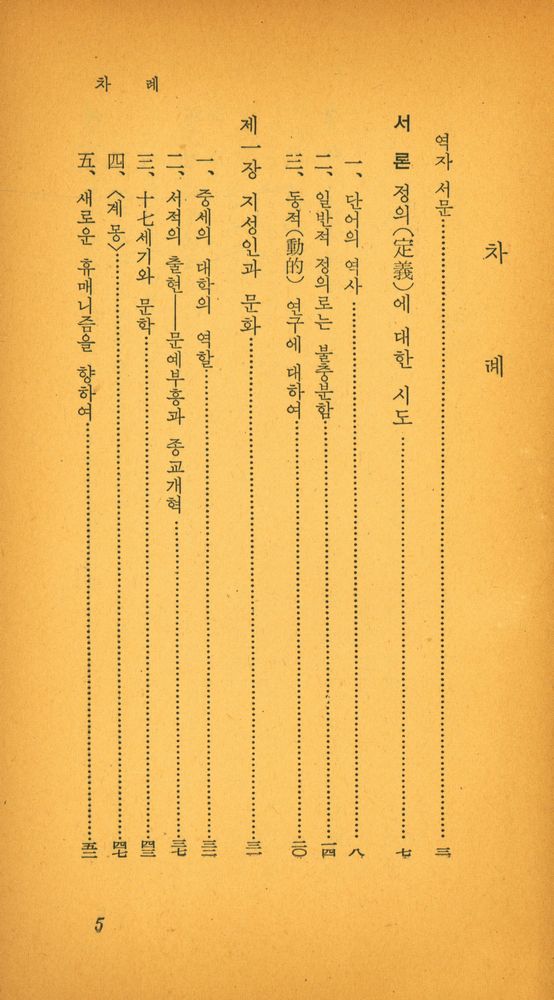 차 례
차 례
역자 서문……三
서 론 정의(定義)에 대한 시도……七
一、 단어의 역사……八
二、 일반적 정의로는 불충분함……一四
三、 동적(動的) 연구에 대하여……二〇
제一장 지성인과 문화……三一
一、 중세의 대학의 역할……三二
二、 서적의 출현──문예부흥과 종교개혁……三七
三、 十七세기와 문학……四三
四、 〈계 몽〉……四七
五、 새로운 휴매니즘을 향하여……五二
5